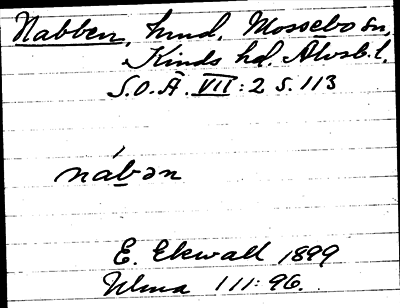 Nabben, hmd. Mossebo sn,
Kinds hd. Älvsb. l.
S.O.Ä. VII: 2 S. 113
nábən
E. Ekwall 1899
Ulma 111: 96.